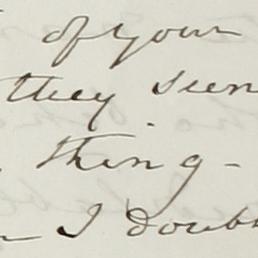 of your
they seen
thing -
I doubt